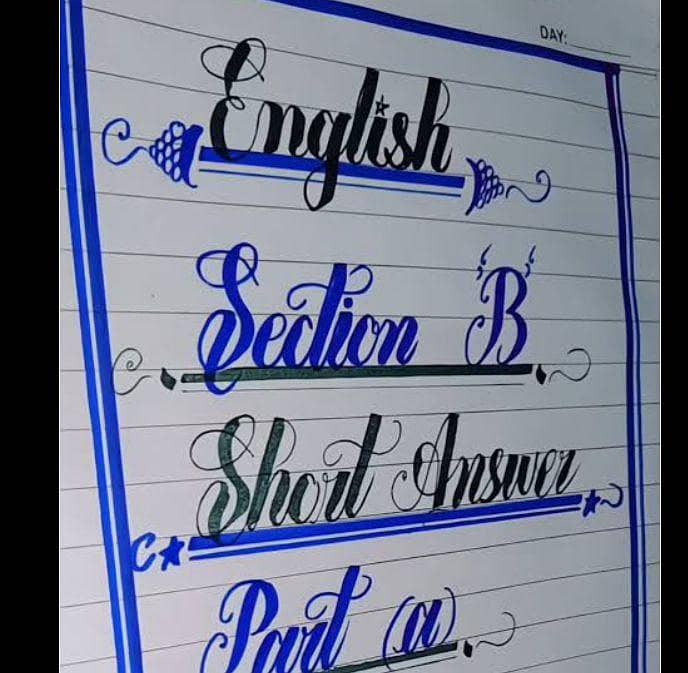 DAY:
English
Section 'B'
Short Answer
Part (a)